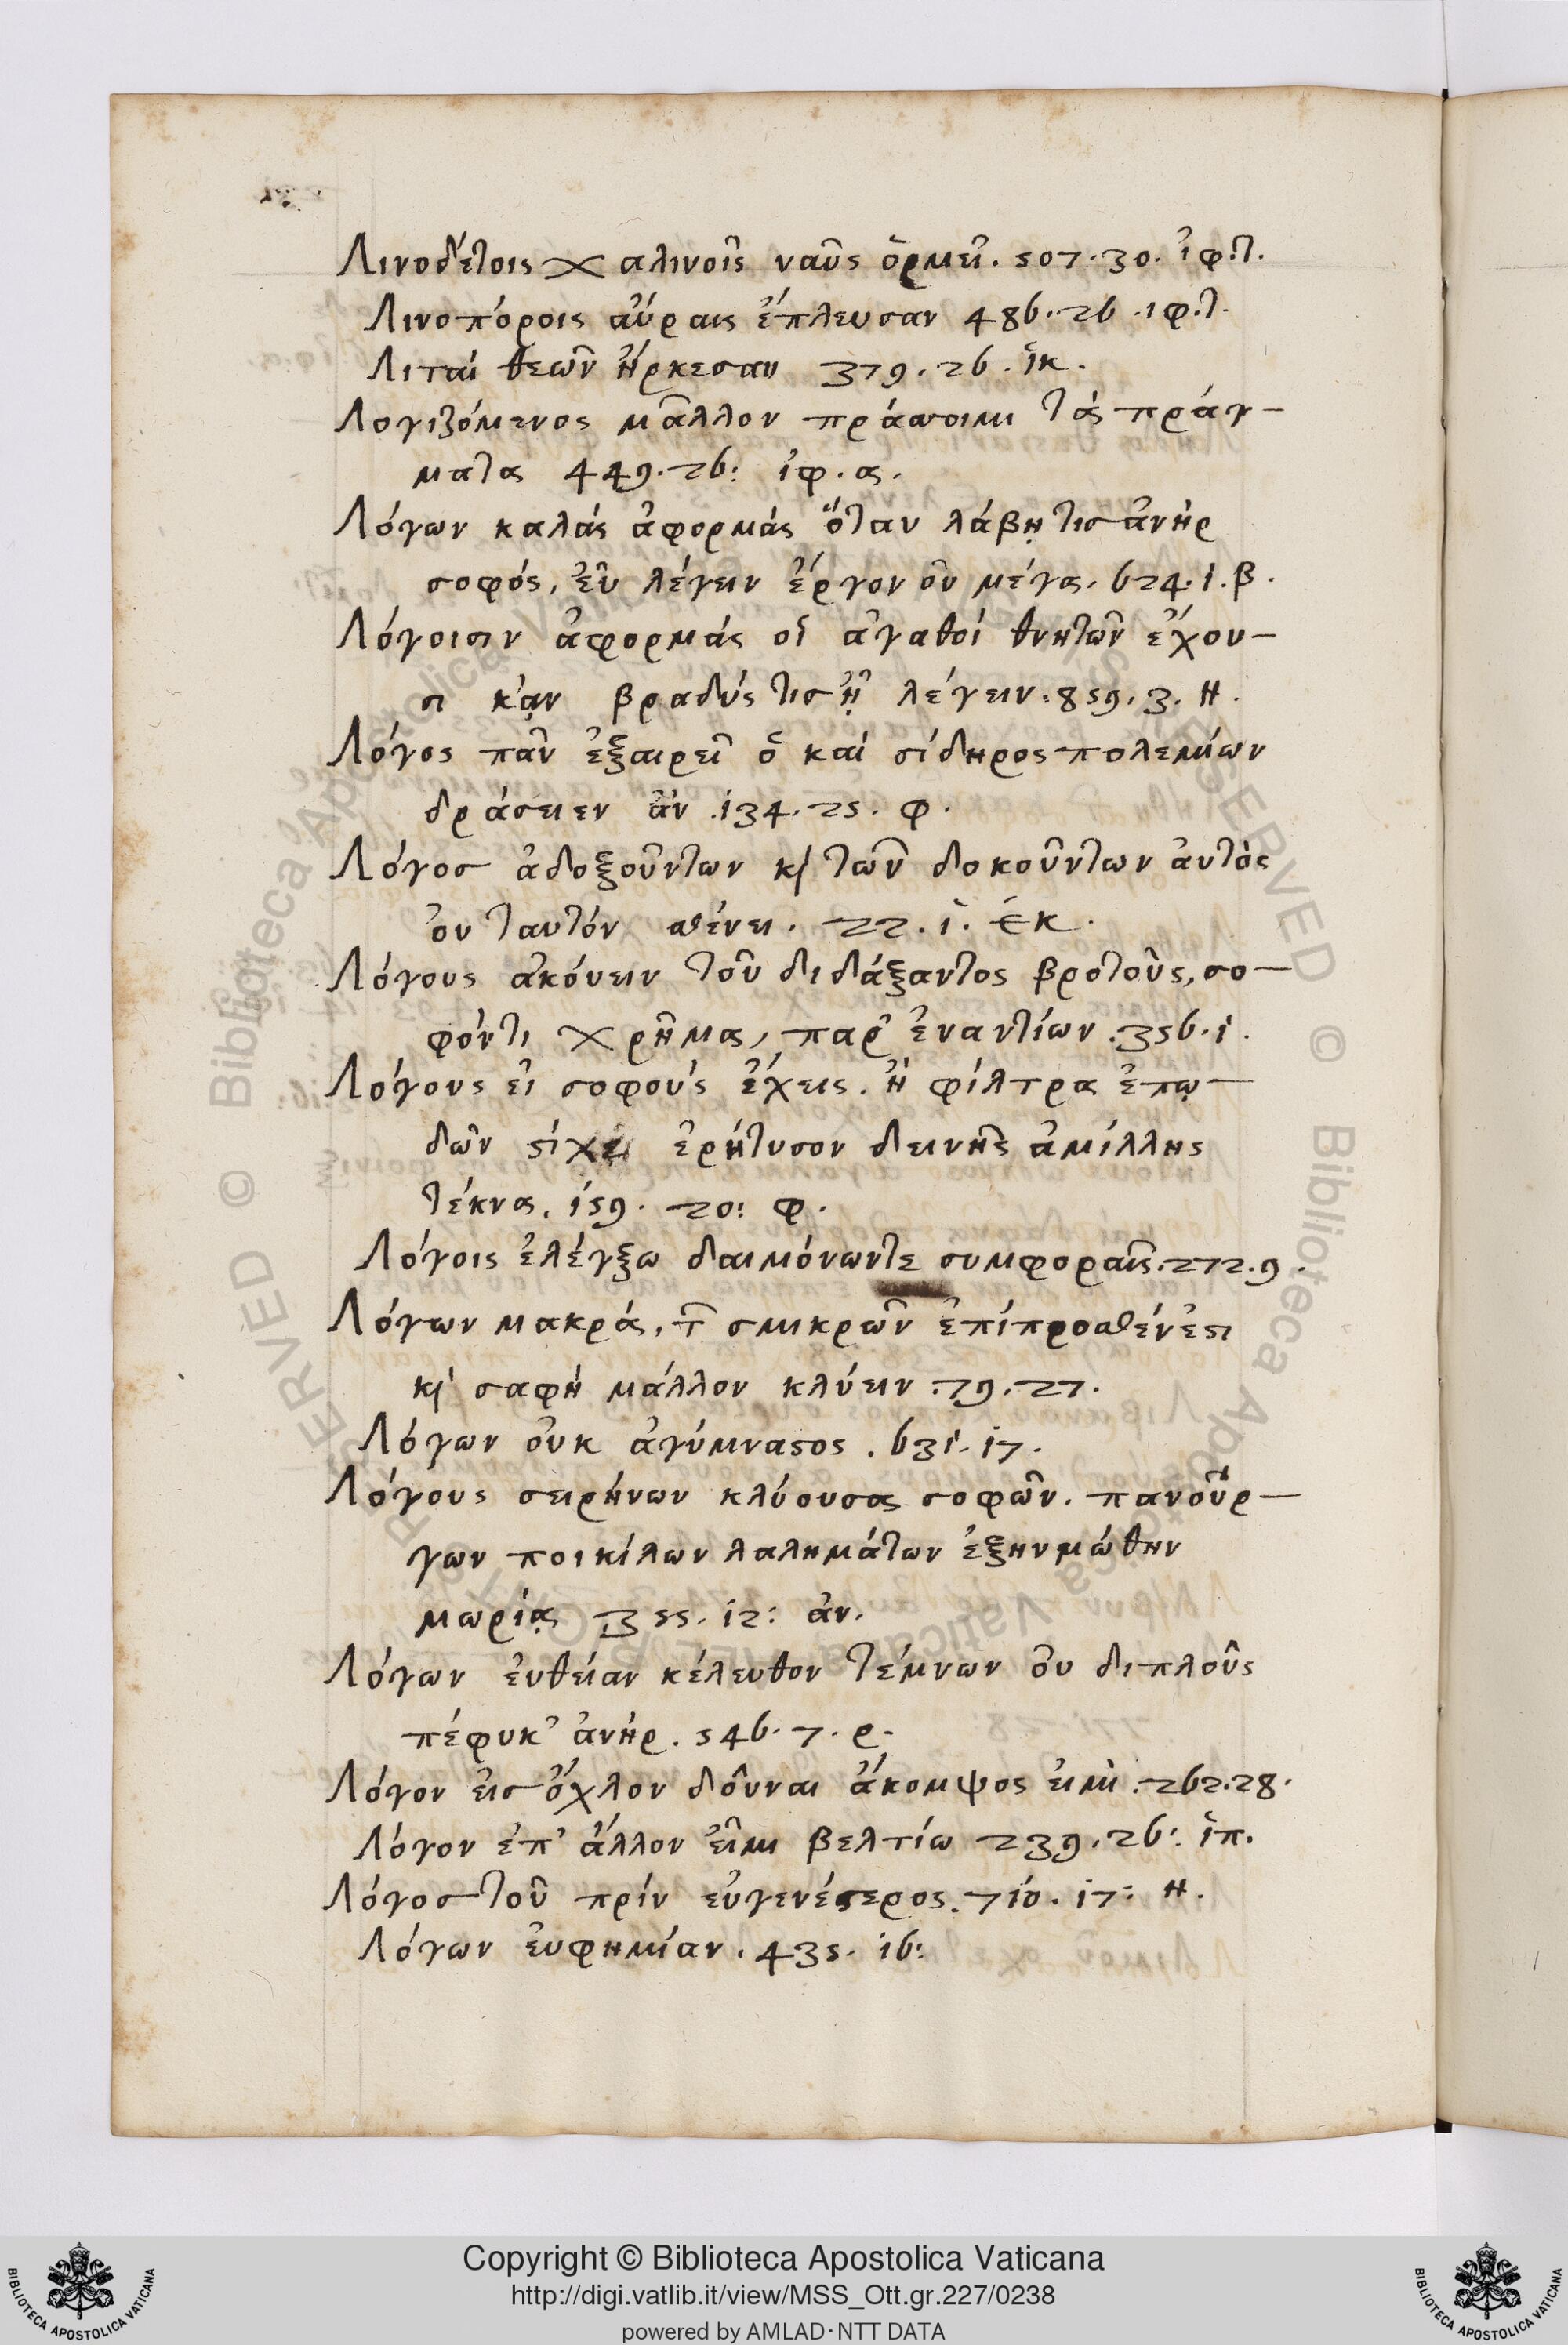 Λινοδέτοις χαλινοῖς ναῦς ὁρμεῖ. 507. 30. ἰφ. τ.
Λινοπόροις αὔραις ἔπλευσαν 486. 26. ιφ. τ.
Λιταί θεῶν ἤρκεσαν 379. 26. ἱκ.
Λογιζόμενος μᾶλλον πράσσοιμι τάς πράγ-
ματα 449. 26: ἰφ. α.
Λόγων καλάς ἀφορμάς ὅταν λάβῃ τις ἀνήρ
σοφός, ἐῦ λέγειν ἔργον οὐ μέγα. 624. 1. β.
Λόγοισιν ἀφορμάς οἱ ἀγαθοί θνητῶν ἔχου-
σι κᾄν βραδύς τις ᾖ λέγειν. 859. 3. Η.
Λόγος πᾶν ἐξαιρεῖ ὅ καί σίδηρος πολεμίων
δράσειεν ἄν. 134. 25. φ.
Λόγος ἀδοξούντων κ̀ τῶν δοκούντων ἀυτὸς
ὀυ ταυτόν σθένει. 22. 1. ἑκ.
Λόγους ἀκούειν τοῦ διδάξαντος βροτοὺς, σο-
φόντι χρῆμα, παρ' ἐναντίων. 356. 1.
Λόγους εἰ σοφούς ἔχεις. ἤ φίλτρα ἐπῳ-
δῶν στίχει ἐρήτυσον δεινῆς ἀμίλλης
τέκνα. 159. 20: φ.
Λόγοις ἐλέγξω δαιμόνωντε συμφοραῖς. 272. 9.
Λόγων μακρά. τ͂ σμικρῶν ἐπίπροσθέν ἐστι
κ̀ σαφή μάλλον κλύειν. 79. 27.
Λόγων οὐκ ἀγύμναστος. 631. 17.
Λόγους σειρήνων κλύουσα σοφῶν. πανούρ-
γων ποικίλων λαλημάτων ἐξηνμώθην
μωρίᾳ 355. 12: ἀν.
Λόγων ἐυθείαν κέλευθον τέμνων ὀυ διπλοῦς
πέφυκ' ἀνήρ. 546. 7. ρ.
Λόγον εἰς ὄχλον δοῦναι ἄκομψος ειμὶ. 262. 28.
Λόγον ἐπ' ἄλλον εἶμι βελτίω 239. 26: ἱπ.
Λόγος τοῦ πρίν εὐγενέστερος. 710. 17: Η.
Λόγων ἐυφημίαν. 435. 16:
Copyright © Biblioteca Apostolica Vaticana
http://digi.vatlib.it/view/MSS_Ott.gr.227/0238
powered by AMLAD·NTT DATA